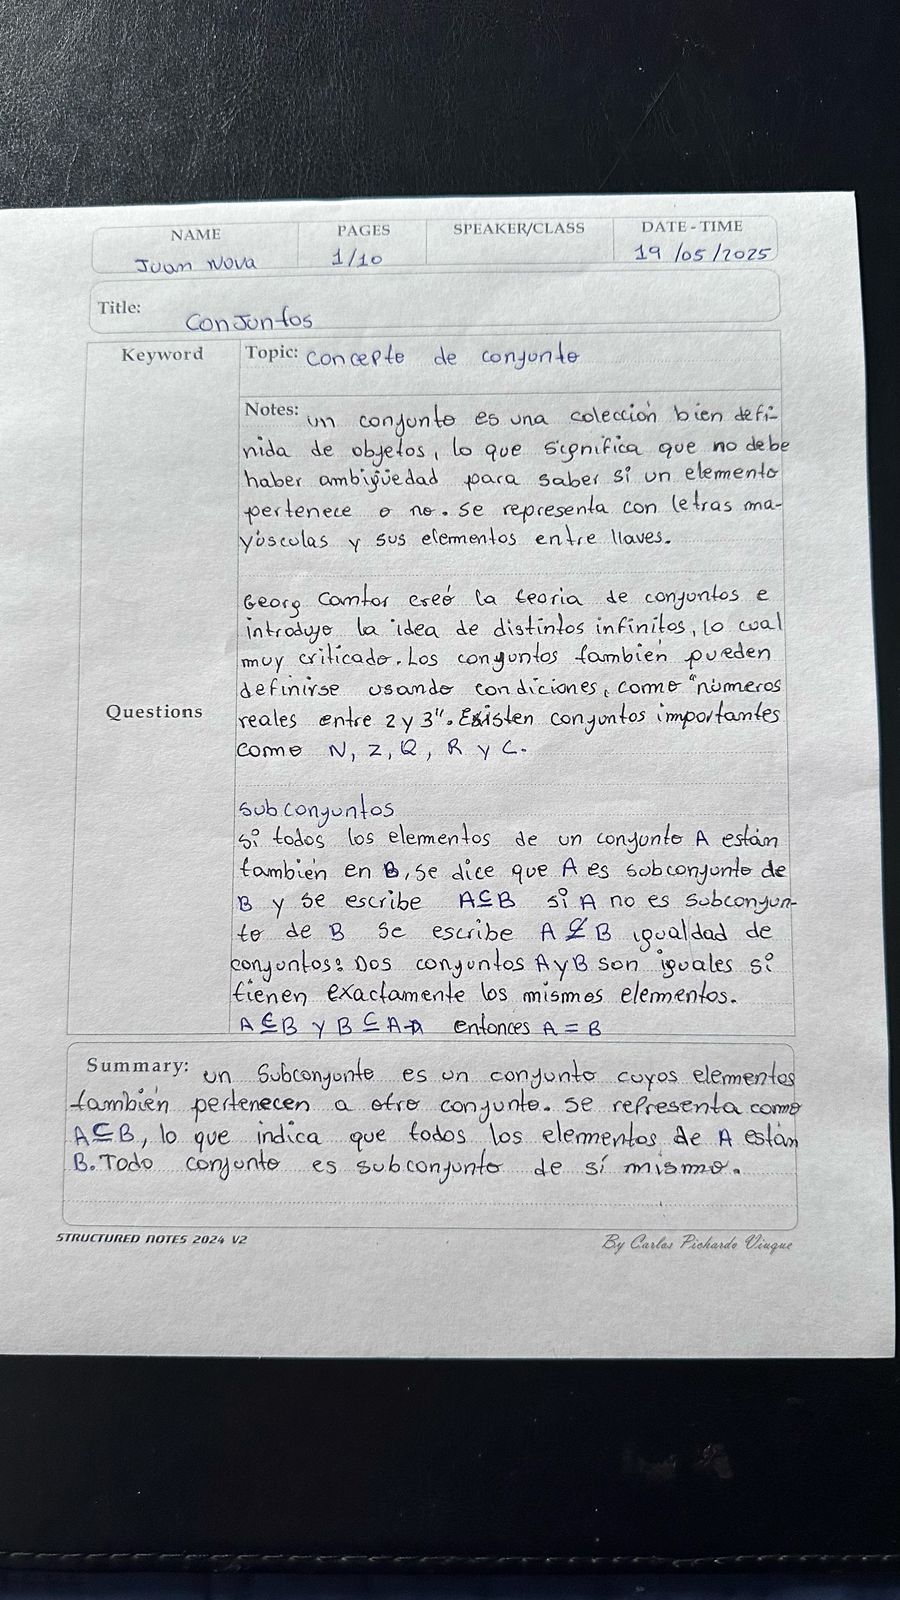 NAME PAGES SPEAKER/CLASS DATE-TIME
Juan Nova 1/10 19/05/2025
Title: Conjuntos
Keyword Topic: Concepto de conjunto
Notes: un conjunto es una colección bien defi-
nida de objetos, lo que significa que no debe
haber ambigüedad para saber si un elemento
pertenece o no. Se representa con letras ma-
yúsculas y sus elementos entre llaves.
Georg Camtor creó la teoria de conjuntos e
introdujo la idea de distintos infinitos, lo cual
muy criticado. Los conjuntos también pueden
definirse usando condiciones, como "números
Questions
reales entre 2 y 3". Existen conjuntos importantes
como N, Z, Q, R y C.
Subconjuntos
si todos los elementos de un conjunto A están
también en B, se dice que A es subconjunto de
B y se escribe A⊆B si A no es subconjun-
to de B se escribe A ⊈ B igualdad de
conjuntos: Dos conjuntos A y B son iguales si
tienen exactamente los mismos elementos.
A⊆B y B⊆A entonces A = B
Summary: un Subconjunto es un conjunto cuyos elementos
también pertenecen a otro conjunto. Se representa como
A⊆B, lo que indica que todos los elementos de A están
B. Todo conjunto es subconjunto de sí mismo.
STRUCTURED NOTES 2024 V2 By Carlos Pichardo Viuque